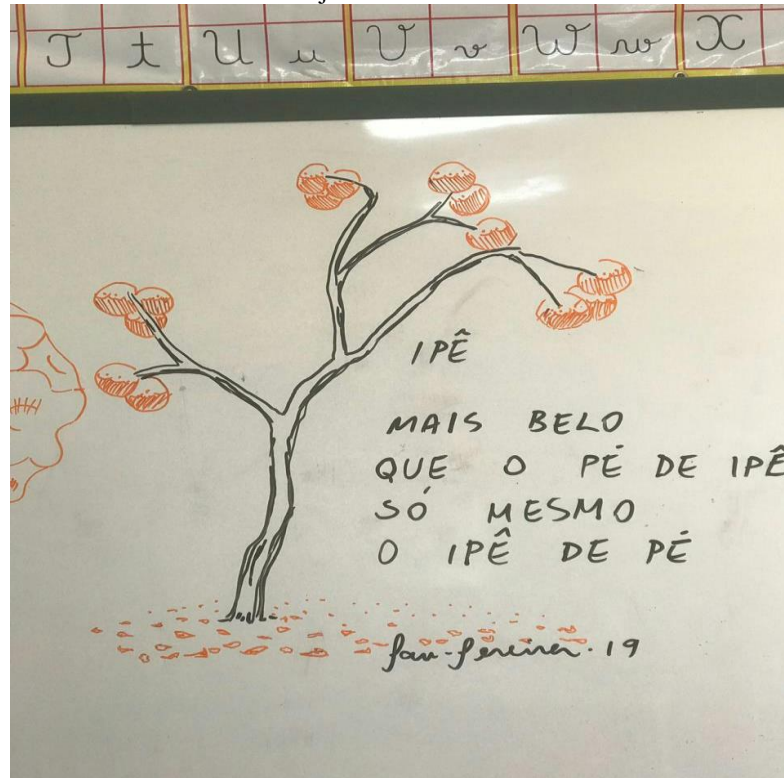 T t U u V v W w X
IPÊ
MAIS BELO
QUE O PÉ DE IPÊ
SÓ MESMO
O IPÊ DE PÉ
19